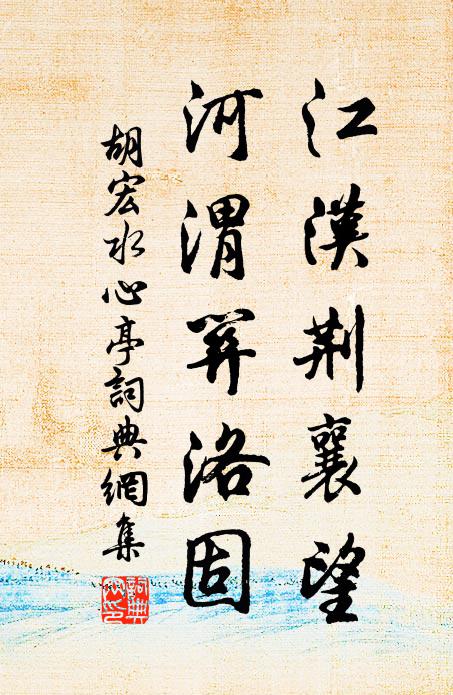 江漢荆襄望
河渭關洛固
胡宏水心亭詞典網集